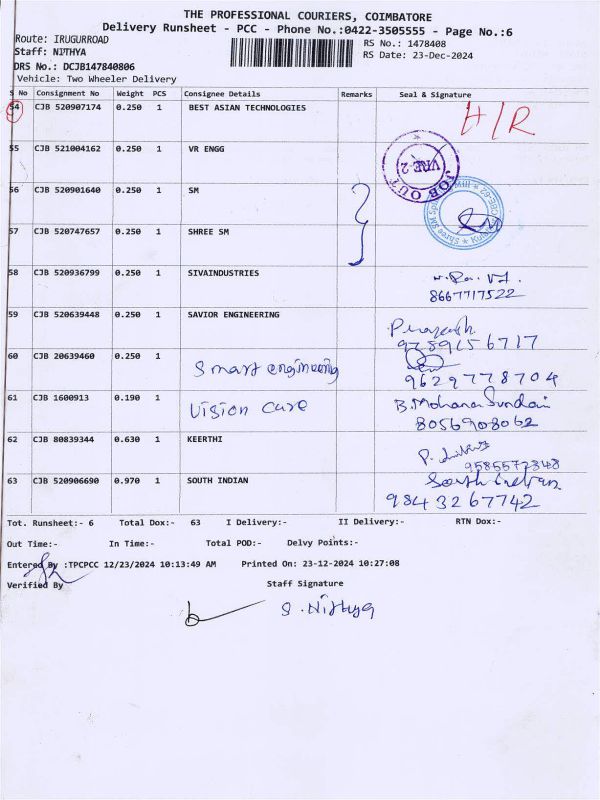 THE PROFESSIONAL COURIERS, COIMBATORE
Delivery Runsheet - PCC - Phone No.:0422-3505555 - Page No.:6
Route: IRUGURROAD
RS No.: 1478408
Staff: NITHYA
RS Date: 23-Dec-2024
DRS No.: DCJB147840806
Vehicle: Two Wheeler Delivery
S No Consignment No Weight PCS Consignee Details Remarks Seal & Signature
54 CJB 520907174 0.250 1 BEST ASIAN TECHNOLOGIES H/R
55 CJB 521004162 0.250 1 VR ENGG
VRE-2
JOB OUT
56 CJB 520901640 0.250 1 SM
57 CJB 520747657 0.250 1 SHREE SM
58 CJB 520936799 0.250 1 SIVAINDUSTRIES
8667717522
59 CJB 520639448 0.250 1 SAVIOR ENGINEERING
Prakash
9789156717
60 CJB 20639460 0.250 1 Smart engineering
9629778704
61 CJB 1600913 0.190 1 Vision Care B.Mohana Sundari
8056908062
62 CJB 80839344 0.630 1 KEERTHI
9585572348
63 CJB 520906690 0.970 1 SOUTH INDIAN South Indian
9843267742
Tot. Runsheet:- 6 Total Dox:- 63 I Delivery:- II Delivery:- RTN Dox:-
Out Time:- In Time:- Total POD:- Delvy Points:-
Entered By :TPCPCC 12/23/2024 10:13:49 AM Printed On: 23-12-2024 10:27:08
Verified By Staff Signature
S. Nithya